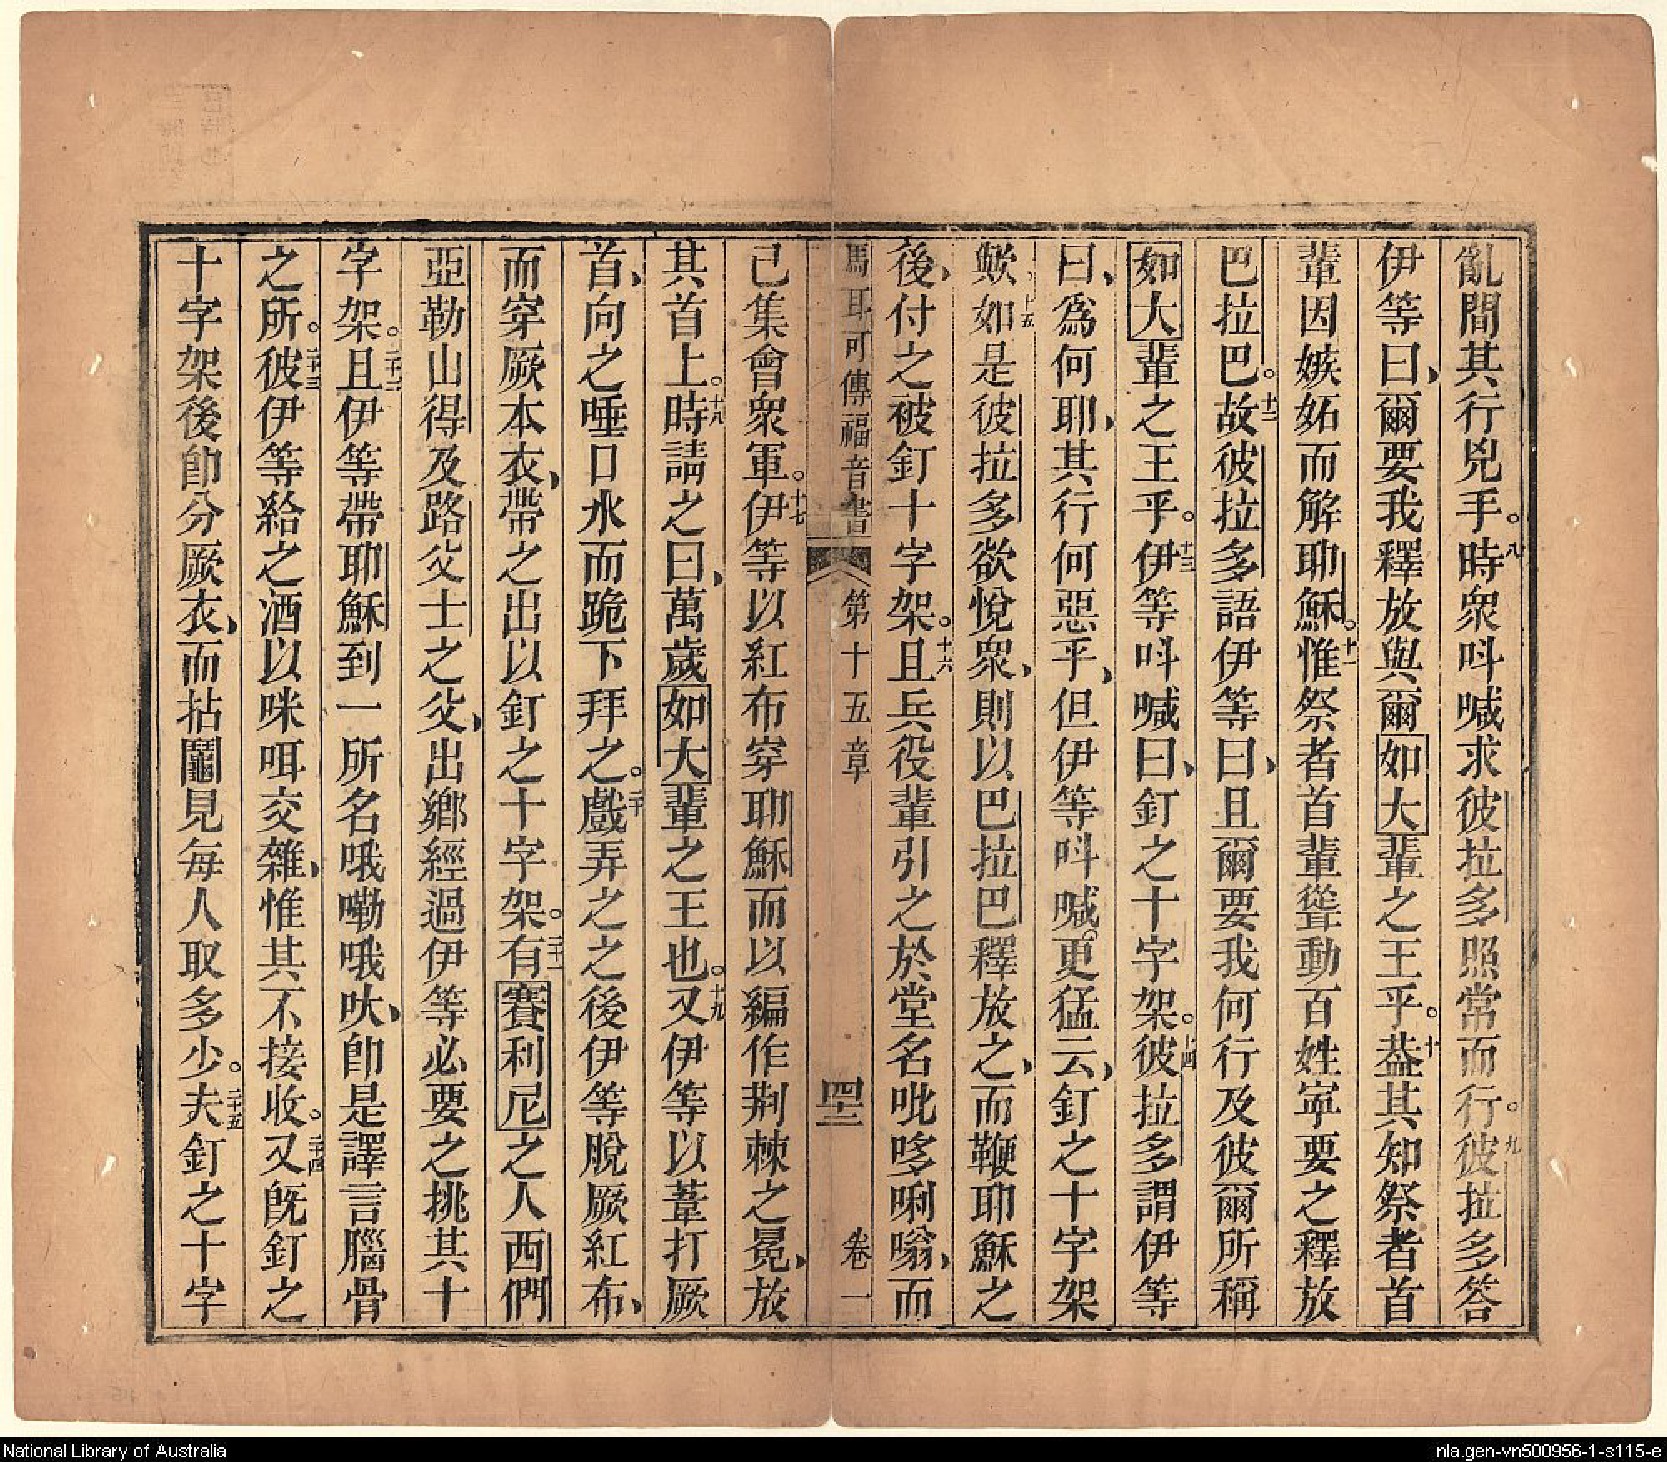 亂間其行兇手。八時衆呌喊求彼拉多照常而行。九彼拉多答
伊等曰、爾要我釋放與爾如大輩之王乎。十葢其知祭者首
輩因嫉妬而解耶穌。十一惟祭者首輩聳動百姓寧要之釋放
巴拉巴。十二故彼拉多語伊等曰、且爾要我何行及彼爾所稱
如大輩之王乎。十三伊等呌喊曰、釘之十字架。十四彼拉多謂伊等
曰、爲何耶、其行何惡乎、但伊等呌喊。更猛云、釘之十字架
歟。十五如是彼拉多欲悅衆、則以巴拉巴釋放之、而鞭耶穌之
後、付之被釘十字架。十六且兵役輩引之於堂名吡哆唎嗡、而
馬耳可傳福音書 第十五章 四十二 卷一
己集會衆軍。十七伊等以紅布穿耶穌而以編作荆棘之冕、放
其首上。十八時請之曰、萬歲如大輩之王也。十九又伊等以葦打厥
首、向之唾口水而跪下拜之。二十戲弄之之後伊等脫厥紅布、
而穿厥本衣、帶之出以釘之十字架。二十一有賽利尼之人西們
亞勒山得及路父士之父、出鄉經過伊等必要之挑其十
字架。二十二且伊等帶耶穌到一所名哦嘞哦吠、卽是譯言腦骨
之所。二十三彼伊等給之酒以咪咡交雜、惟其不接收。二十四又旣釘之
十字架後卽分厥衣、而拈鬮見每人取多少。二十五夫釘之十字
National Library of Australia
nla.gen-vn500956-1-s115-e